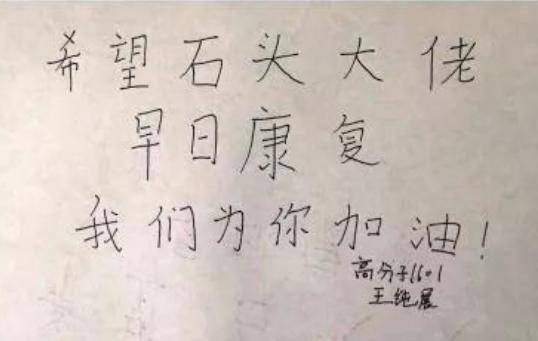 希望石头大佬
早日康复
我们为你加油！
高分子1601
王纯展